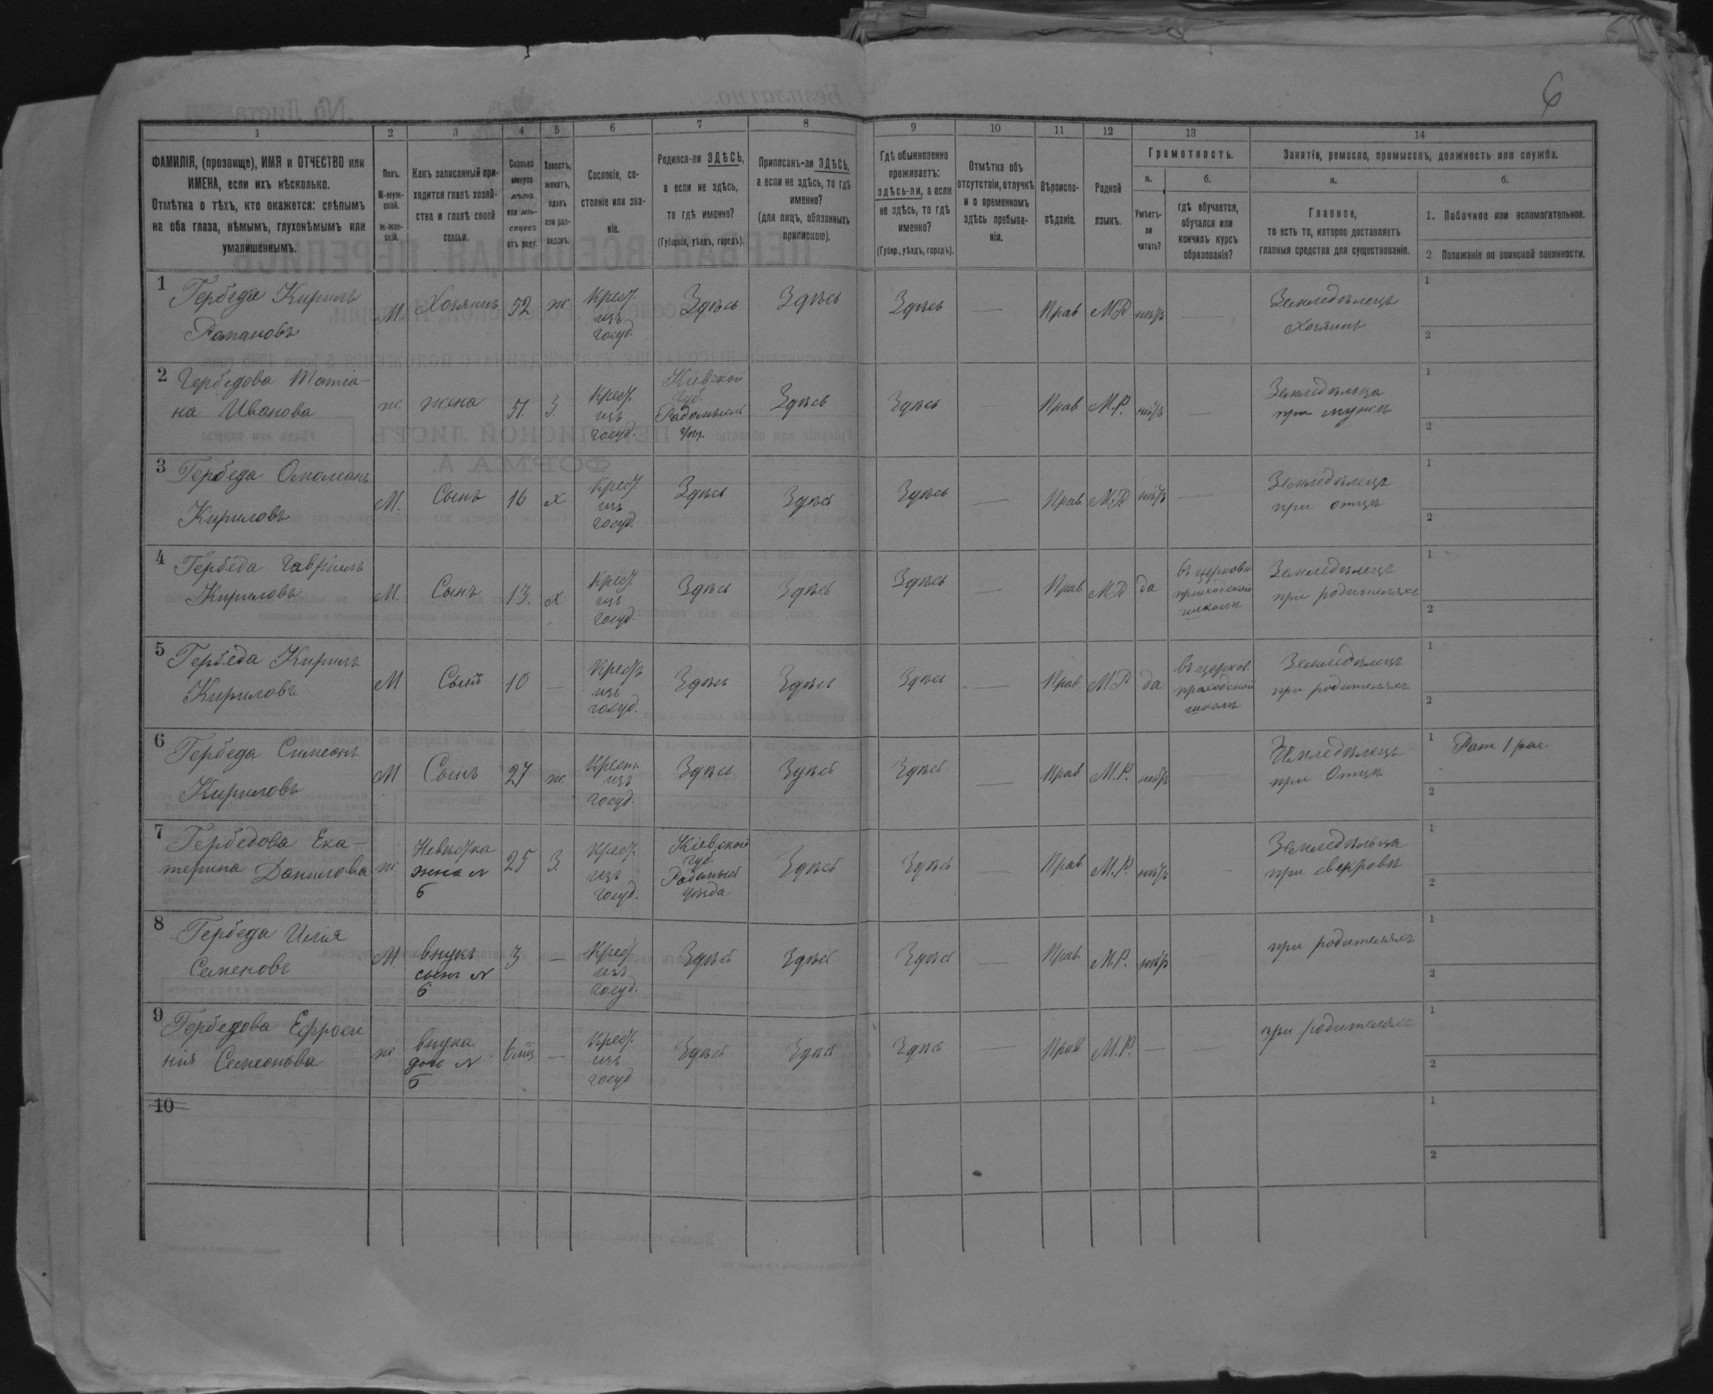 6
1
2
3
4
5
6
7
8
9
10
11
12
13
14
ФАМИЛІЯ, (прозвище), ИМЯ и ОТЧЕСТВО или
ИМЕНА, если ихъ нѣсколько.
Отмѣтка о тѣхъ, кто окажется: слѣпымъ
на оба глаза, нѣмымъ, глухонѣмымъ или
умалишеннымъ.
Полъ.
М-муж-
ской.
ж-жен-
скій.
Какъ записанный при-
ходится главѣ хозяй-
ства и главѣ своей
семьи.
Сколько
минуло
лѣтъ
или мѣ-
сяцевъ
отъ роду.
Холостъ,
женатъ,
вдовъ
или раз-
веденъ.
Сословіе, со-
стояніе или зва-
ніе.
Родился-ли ЗДѢСЬ,
а если не здѣсь,
то гдѣ именно?
(Губернія, уѣздъ, городъ).
Приписанъ-ли ЗДѢСЬ,
а если не здѣсь, то гдѣ
именно?
(для лицъ, обязанныхъ
припискою).
Гдѣ обыкновенно
проживаетъ:
здѣсь-ли, а если
не здѣсь, то гдѣ
именно?
(Губер., уѣздъ, городъ).
Отмѣтка объ
отсутствіи, отлучкѣ
и о временномъ
здѣсь пребыва-
ніи.
Вѣроиспо-
вѣданіе.
Родной
языкъ.
Грамотность.
а.
б.
Умѣетъ-
ли
читать?
гдѣ обучается,
обучался или
кончилъ курсъ
образованія?
Занятіе, ремесло, промыселъ, должность или служба.
а.
б.
Главное,
то есть то, которое доставляетъ
главныя средства для существованія.
1. Побочное или вспомогательное.
2 Положеніе по воинской повинности.
1 Гербеда Кирилъ
Романовъ
М. Хозяинъ 52 ж Крест.
изъ
госуд.
Здѣсь Здѣсь Здѣсь — Прав МР нѣтъ —
Земледѣлецъ
Хозяинъ
1
2
2 Гербедова Татіа-
на Иванова
ж жена 51 З. Крест.
изъ
госуд.
Кіевской
губ.
Радомысл
уѣз.
Здѣсь Здѣсь — Прав М.Р. нѣтъ —
Земледѣлица
при мужѣ
1
2
3 Гербеда
Кириловъ
М. Сынъ 16 х Крест
изъ
госуд.
Здѣсь Здѣсь Здѣсь — Прав МР нѣтъ —
Земледѣлецъ
при отцѣ
1
2
4 Гербеда Гавріилъ
Кириловъ
М. Сынъ 13. х Крест
изъ
госуд.
Здѣсь Здѣсь Здѣсь — Прав МР да
въ церковно
приходской
школѣ
Земледѣлецъ
при родителяхъ
1
2
5 Гербеда Кирилъ
Кириловъ
М Сынъ 10 — Крестъ
изъ
госуд.
Здѣсь Здѣсь Здѣсь — Прав МР да
въ церков
приходской
школѣ
Земледѣлецъ
при родителяхъ
1
2
6 Гербеда Симеонъ
Кириловъ
М Сынъ 27 ж Крест.
изъ
госуд.
Здѣсь Здѣсь Здѣсь — Прав М.Р. нѣтъ
Земледѣлецъ
при Отцѣ
1 Рат 1 раз.
2
7 Гербедова Ека-
терина Данилова
ж Невѣстка
жена N
6
25 З Крест.
изъ
госуд.
Кіевской
губ.
Радомысл
уѣзда
Здѣсь Здѣсь — Прав М.Р. нѣтъ —
Земледѣлица
при свекровѣ
1
2
8 Гербеда Илія
Семеновъ
М. внукъ
сынъ N
6
3 — Крест
изъ
госуд.
Здѣсь Здѣсь Здѣсь — Прав М.Р. нѣтъ
при родителяхъ
1
2
9 Гербедова Ефроси
нія Семеонова
ж внука
доч N
6
6мц — Крест.
изъ
госуд
Здѣсь Здѣсь Здѣсь — Прав М.Р. — —
при родителяхъ
1
2
10
1
2